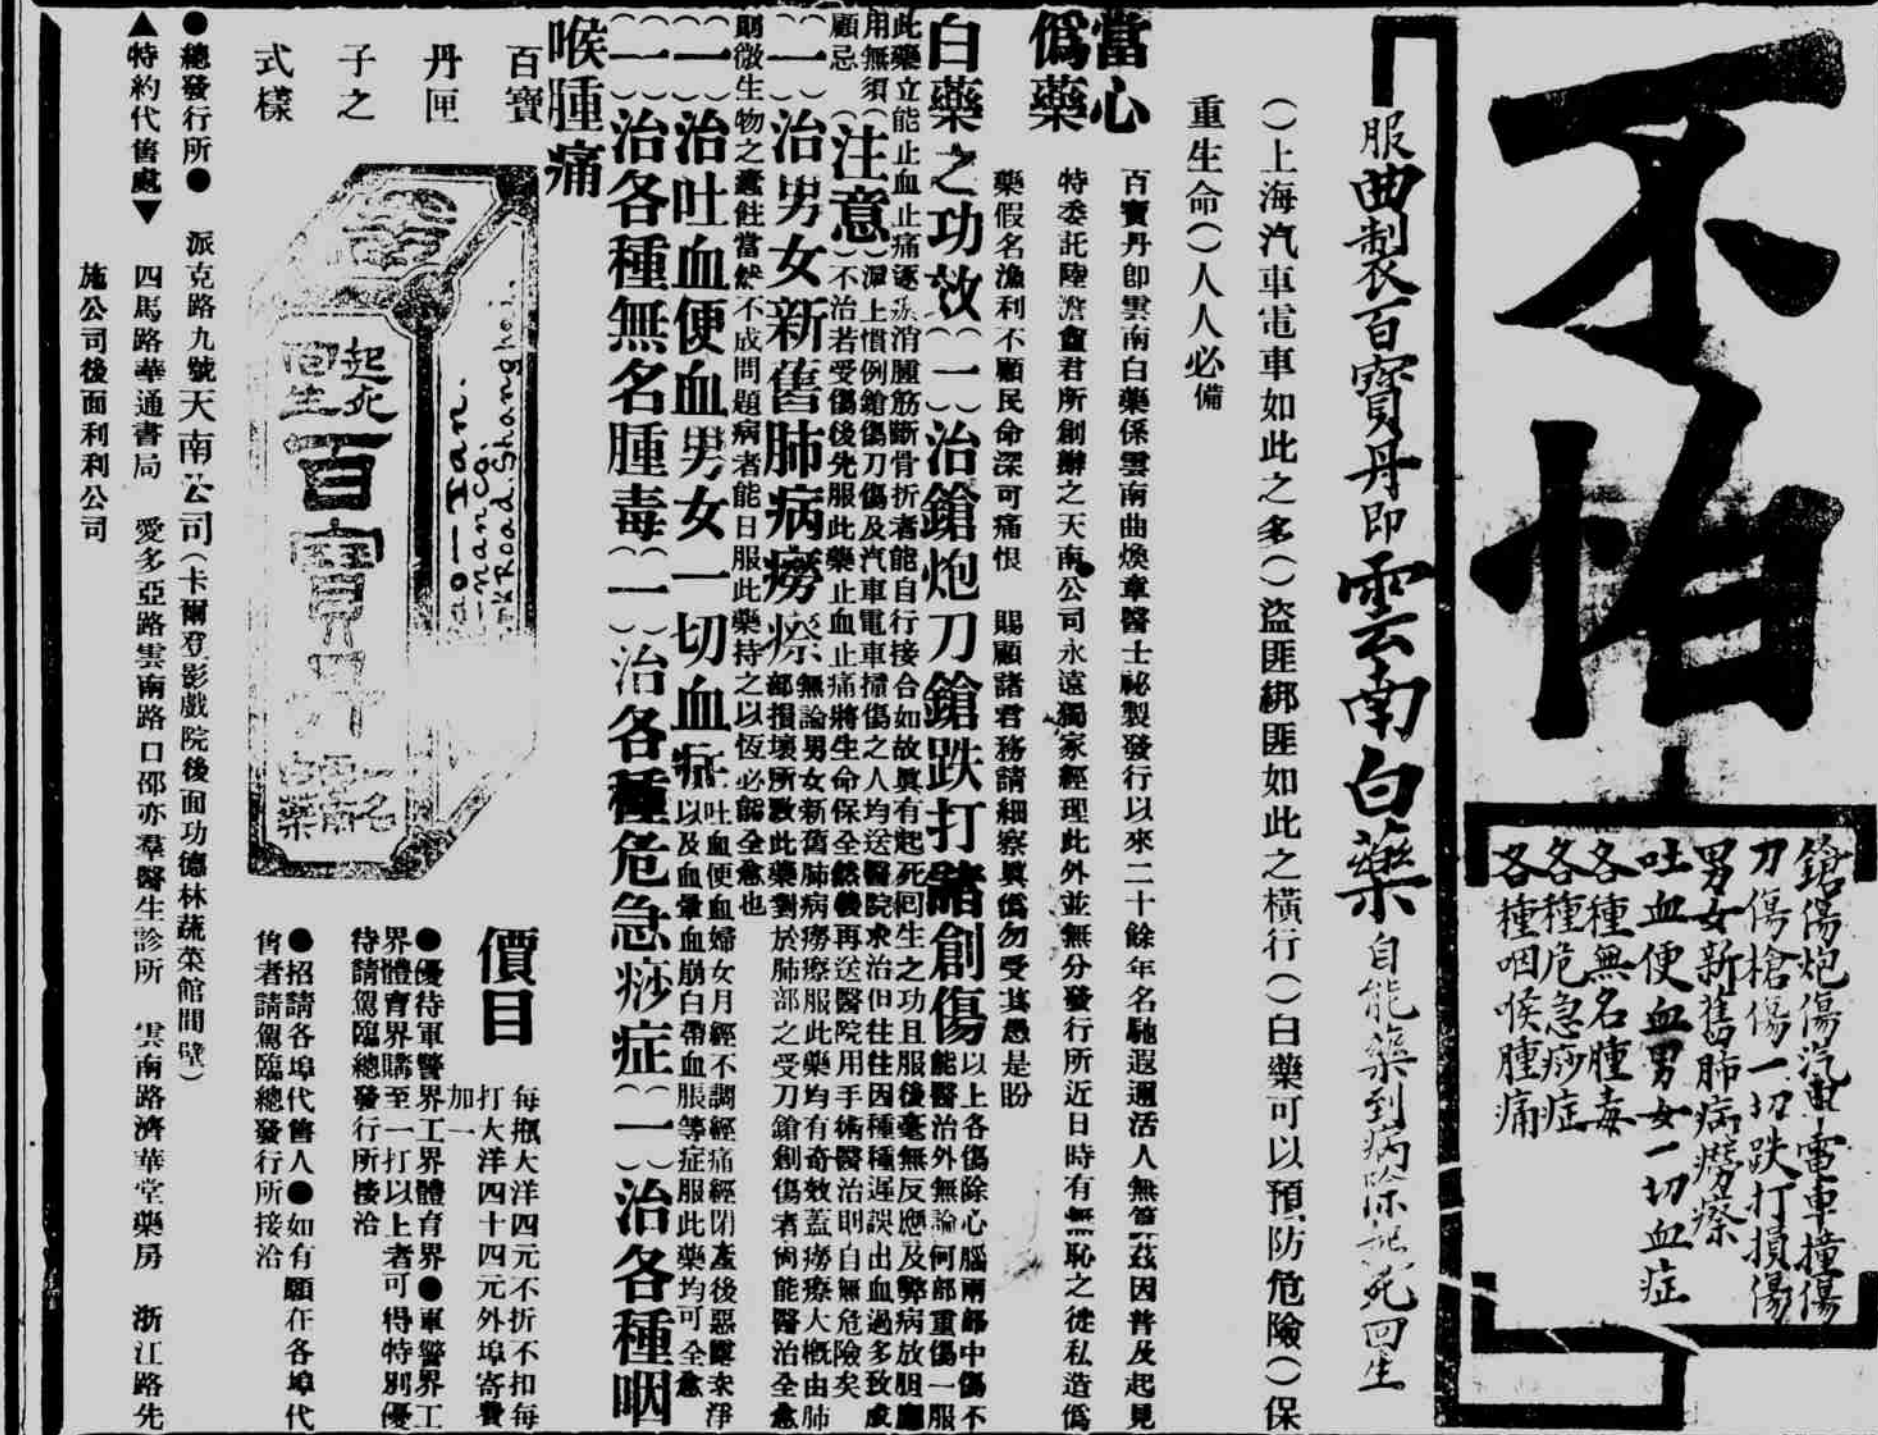 不怕
鎗傷炮傷汽車電車撞傷
刀傷槍傷一切跌打損傷
男女新舊肺病癆瘵
吐血便血男女一切血症
各種無名腫毒
各種危急痧症
各種咽喉腫痛
服曲製衣百寶丹即雲南白藥自能藥到病除起死回生
()上海汽車電車如此之多()盜匪綁匪如此之橫行()白藥可以預防危險()保
重生命()人人必備
當心
偽藥
百寶丹即雲南白藥係雲南曲煥章醫士祕製發行以來二十餘年名馳遐邇活人無算茲因普及起見
特委託陸澹盦君所創辦之天南公司永遠獨家經理此外並無分發行所近日時有無恥之徒私造偽
藥假名漁利不顧民命深可痛恨 賜顧諸君務請細察眞偽勿受其愚是盼
白藥之功效(一)治鎗炮刀鎗跌打諸創傷
以上各傷除心腦兩部中傷不
能醫治外無論何部重傷一服
此藥立能止血止痛逐瘀消腫筋斷骨折者能自行接合如故眞有起死回生之功且服後毫無反應及弊病放胆應
用無須
顧忌
(注意)
滬上慣例鎗傷刀傷及汽車電車撞傷之人均送醫院求治但往往因種種遲誤出血過多致成
不治若受傷後先服此藥止血止痛將生命保全然後再送醫院用手術醫治則自無危險矣
(一)治男女新舊肺病癆瘵
無論男女新舊肺病癆瘵服此藥均有奇效蓋癆瘵大概由肺
部損壞所致此藥對於肺部之受刀鎗創傷者尚能醫治全愈
則微生物之蠹蛀當然不成問題病者能日服此藥持之以恆必能全愈也
(一)治吐血便血男女一切血症
吐血便血婦女月經不調經痛經閉產後惡露未淨
以及血暈血崩白帶血脹等症服此藥均可全愈
(一)治各種無名腫毒(一)治各種危急痧症(一)治各種咽
喉腫痛
百寶
丹匣
子之
式樣
起死
回生
百寶丹
雲南
白藥
價目
每瓶大洋四元不折不扣每
打大洋四十四元外埠寄費
加一
●優待軍警界工界體育界●軍警界工
界體育界購至一打以上者可得特別優
待請駕臨總發行所接洽
●招請各埠代售人●如有願在各埠代
售者請駕臨總發行所接洽
●總發行所● 派克路九號天南公司(卡爾登影戲院後面功德林蔬菜館間壁)
▲特約代售處▼ 四馬路華通書局 愛多亞路雲南路口邵亦羣醫生診所 雲南路濟華堂藥房 浙江路先
施公司後面利利公司